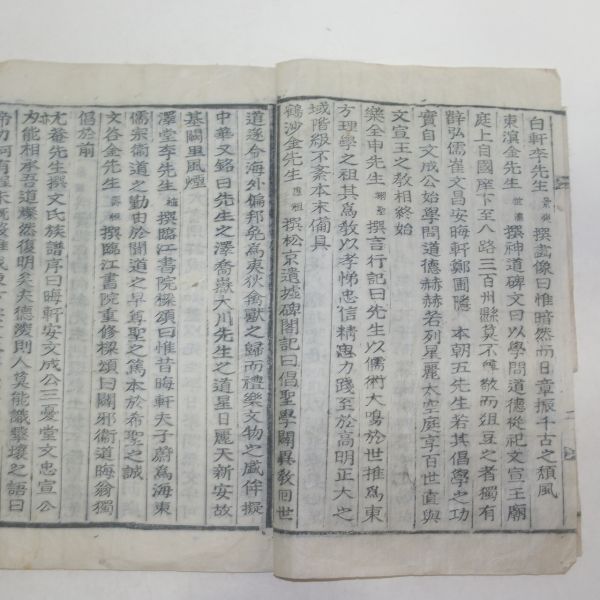 白軒李先生 景奭 撰畵像曰惟暗然而日章振千古之頹風
東溟金先生 世濂 撰神道碑文曰以學問道德從祀文宣王廟
庭上自國庠下至八路三百州縣莫不尊敬而俎豆之者獨有
薛弘儒崔文昌安晦軒鄭圃隱 本朝五先生若其倡學之功
實自文成公始學問道德赫赫若列星麗太空庭享百世直與
文宣王之敎相終始
樂全申先生 翊聖 撰言行記曰先生以儒術大鳴於世推爲東
方理學之祖其爲敎以孝悌忠信精思力踐至於高明正大之
域階級不紊本末備具
鶴沙金先生 應祖 撰松京遺墟碑閣記曰倡聖學闢異敎回世
道遂令海外偏邦免爲夷狄禽獸之歸而禮樂文物之盛侔擬
中華又銘曰先生之澤喬嶽大川先生之道星日麗天新安故
基闕里風煙
澤堂李先生 植 撰臨江書院樑頌曰惟昔晦軒夫子蔚爲海東
儒宗衛道之勤由於聞道之早尊聖之篤本於希聖之誠
文谷金先生 壽恒 撰臨江書院重修樑頌曰闢邪衛道晦翁獨
倡於前
尤菴先生撰文氏族譜序曰晦軒安文成公三憂堂文忠宣公
乃能相承吾道燦然復明矣夫德澟則人莫能識擊壤之語曰